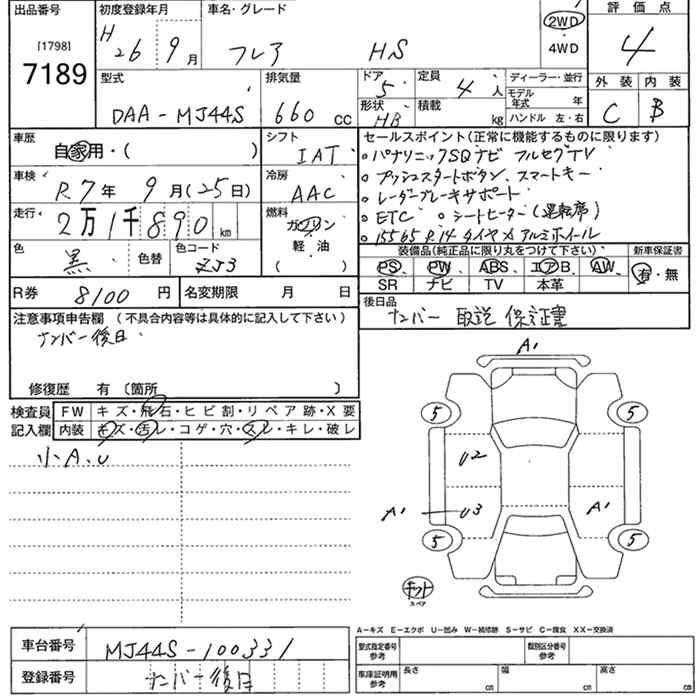 出品番号 初度登録年月 車名・グレード 評価点
[1798] H 26 9月 フレア HS 2WD ・ 4WD 4
7189
型式 排気量 ドア 定員 ディーラー・並行 外装 内装
DAA-MJ44S 660 cc 5 4人 モデル年式 年 C B
形状 HB 積載 kg ハンドル 左・右
車歴 シフト セールスポイント(正常に機能するものに限ります)
自家用・( ) IAT 。パナソニックSDナビ フルセグTV
車検 冷房 。プッシュスタートボタン、スマートキー
R7年 9月(25日) AAC 。レーダーブレーキサポート
走行 燃料 。ETC 。シートヒーター(運転席)
2万1千890km ガソリン 。155 65 R.14 タイヤ×アルミホイール
色 色替 色コード 軽油 装備品(純正品に限り丸をつけて下さい) 新車保証書
黒 ZJ3 ( ) PS PW ABS エアB AW 有・無
SR ナビ TV 本革
R券 8100円 名変期限 月 日 後日品
ナンバー 取説 保証書
注意事項申告欄(不具合内容等は具体的に記入して下さい)
ナンバー後日
修復歴 有(箇所 )
検査員 FW キズ・飛石・ヒビ割・リペア跡・X要
記入欄 内装 キズ・汚レ・コゲ・穴・スレ・キレ・破レ
小A、U
A1
5 5
U2
A1 U3 A1
5 5
キット
スペア
A−キズ E−エクボ U−凹み W−補修跡 S−サビ C−腐食 XX−交換済
車台番号 MJ44S-100331 型式指定番号参考 類別区分番号参考
登録番号 ナンバー後日 車庫証明用参考 長さ cm 幅 cm 高さ cm